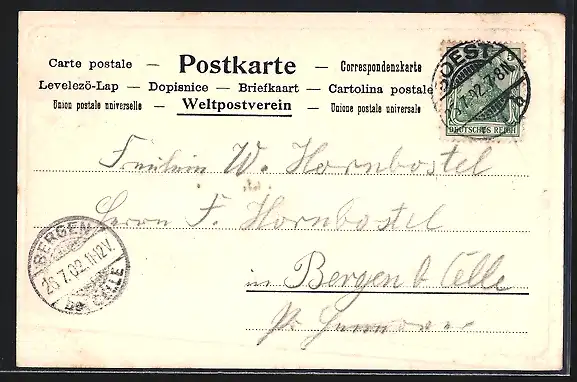 Carte postale – Postkarte – Correspondenzkarte
Levelezö-Lap – Dopisnice – Briefkaart – Cartolina postale
Union postale universelle – Weltpostverein – Unione postale universale
SOEST
7.02.7-8N
5
DEUTSCHES REICH
Fräulein W. Hornbostel
Herrn F. Hornbostel
in Bergen b Celle
BERGEN
26.7.02.11-12V.
CELLE